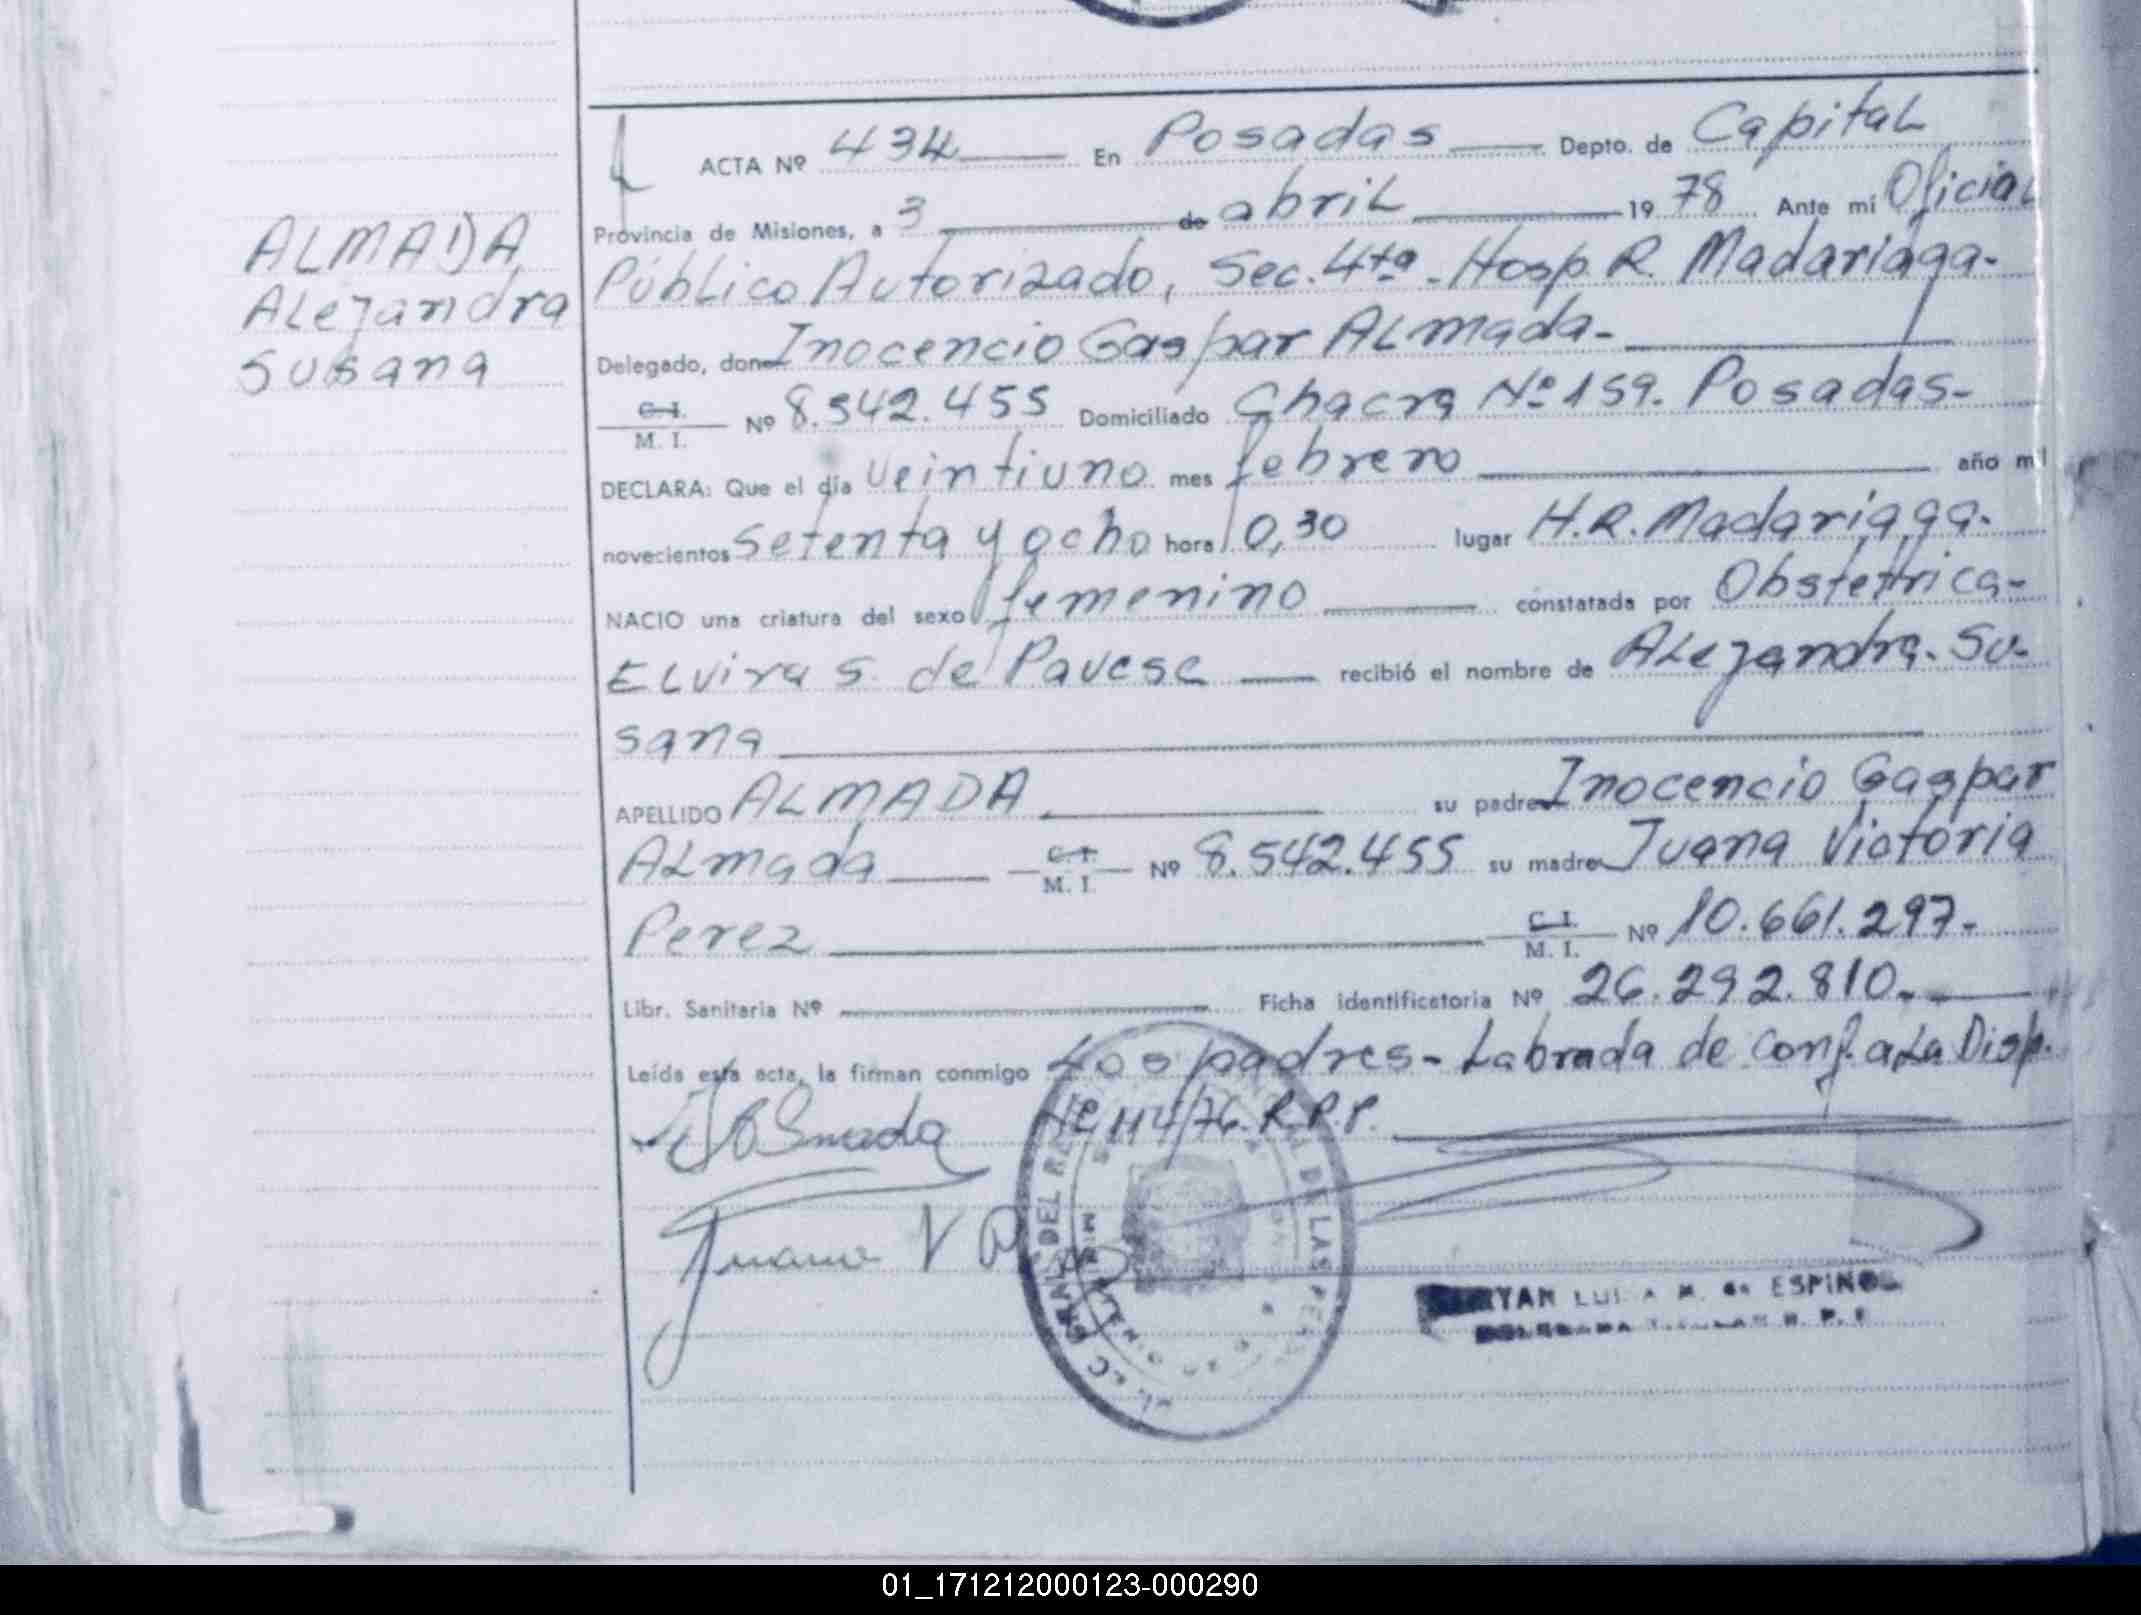 ALMADA
Alejandra
Susana
ACTA Nº 434 En Posadas Depto. de Capital
Provincia de Misiones, a 3 de abril 1978 Ante mí Oficial
Público Autorizado, Sec. 4ta - Hosp. R. Madariaga-
Delegado, don Inocencio Gaspar Almada-
C. I.
M. I. Nº 8.542.455 Domiciliado Chacra Nº 159. Posadas-
DECLARA: Que el día veintiuno mes febrero año mil
novecientos setenta y ocho hora 0,30 lugar H.R. Madariaga-
NACIO una criatura del sexo femenino constatada por Obstetrica-
Elvira S. de Pavese recibió el nombre de Alejandra- Su-
sana
APELLIDO ALMADA su padre Inocencio Gaspar
Almada C. I.
M. I. Nº 8.542.455 su madre Juana Victoria
Perez C. I.
M. I. Nº 10.661.297-
Libr. Sanitaria Nº Ficha identificatoria Nº 26.292.810-
Leída esta acta, la firman conmigo los padres- Labrada de conf. a la Disp.
Nº 114/76. R.P.P.
Almada
Juana V P
DEL DE LAS
LUISA M. de ESPINOL
DELEGADA
01_171212000123-000290